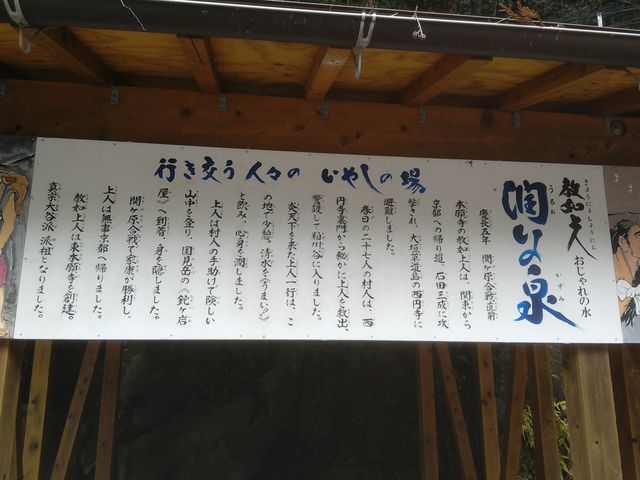 行き交う人々の いやしの場
教如上人 おじゃれの水
きょうにょしょうにん
潤いの泉
うるお いずみ
慶長五年 関ヶ原合戦直前
本願寺の教如上人は、関東から
京都への帰り道、石田三成に攻
撃され、大垣草道島の西円寺に
避難しました。
春日の二十七人の村人は、西
円寺裏門から秘かに上人を救出、
警護して粕川谷に入りました。
炎天下を来た上人一行は、こ
の地で小憩。清水を《うまい》
と飲み、心身を潤しました。
上人は村人の手助けで険しい
山中を登り、国見岳の《鉈ヶ岩
屋》へ到着、身を隠しました。
関ヶ原合戦で家康が勝利し、
上人は無事京都へ帰りました。
教如上人は東本願寺を創建。
真宗大谷派 派祖となりました。